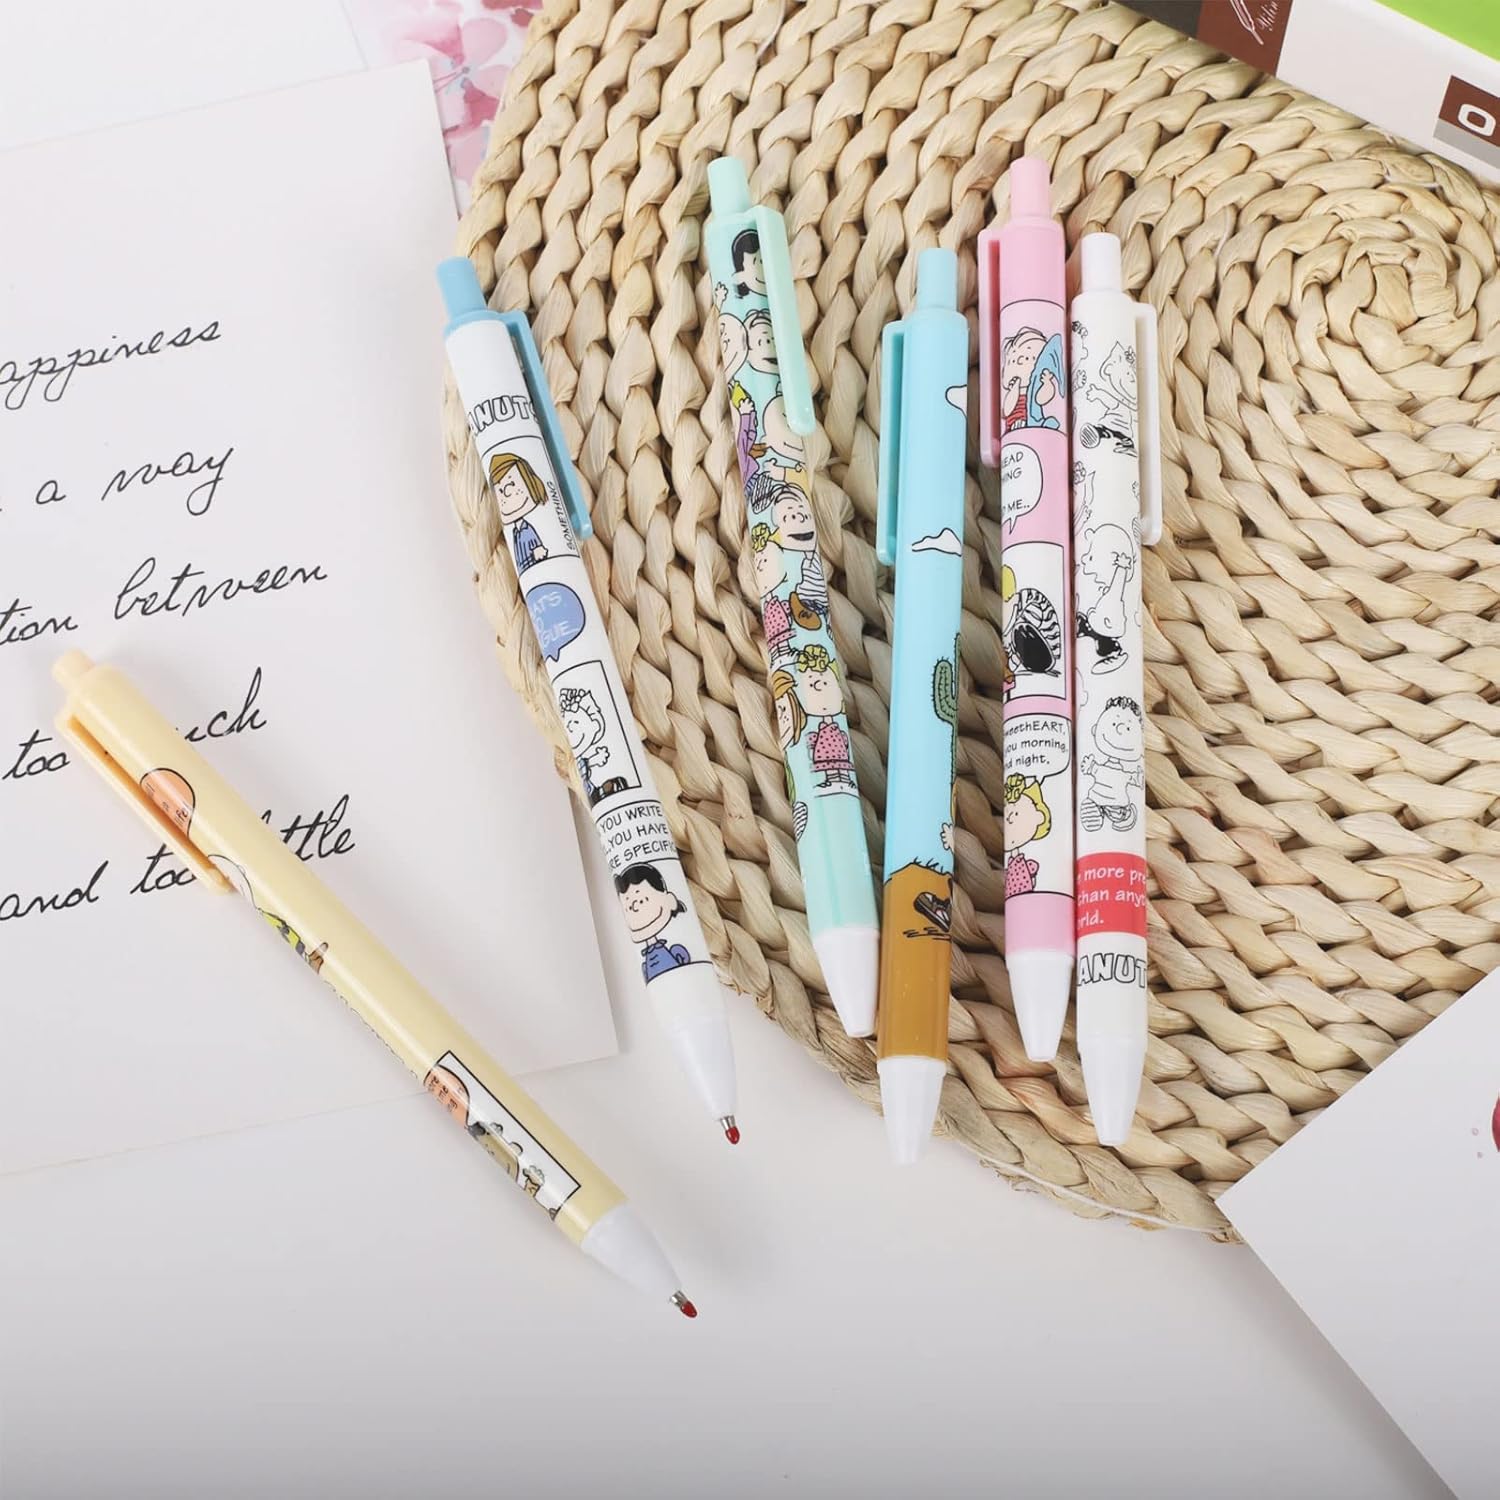 appiness
a way
tion between
too much
and too little
ANUTS
SOMETHING
YOU WRITE
YOU HAVE
RE SPECIFIC
EAD
ME..
weethEART,
you morning,
nd night.
more pre
than anyt
orld.
ANUT
O